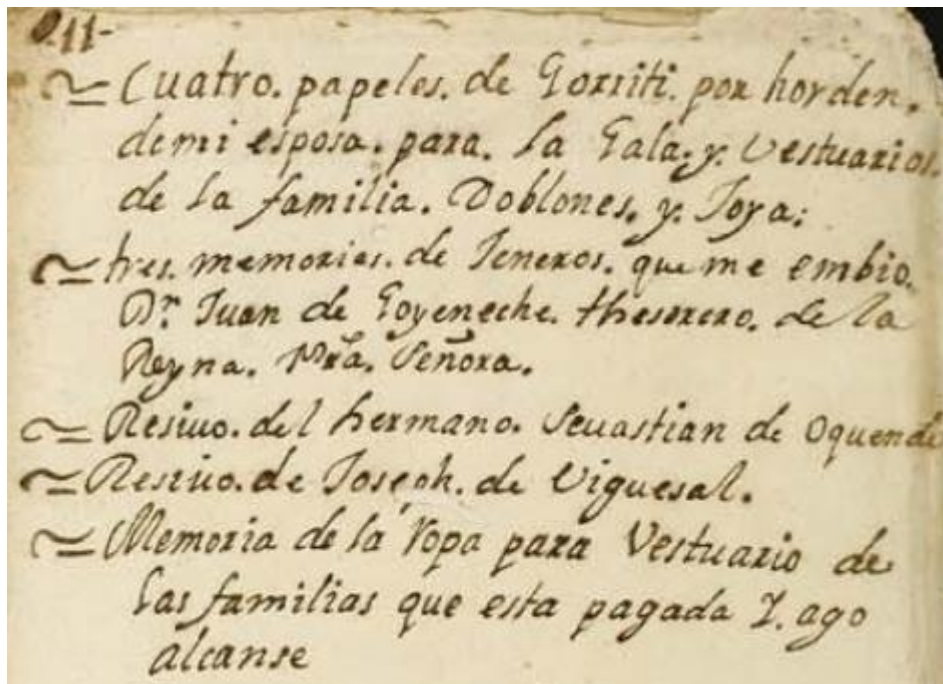 11-
Cuatro. papeles. de Gorriti. por horden.
de mi esposa. para. la Gala. y. Vestuarios.
de la familia. Doblones. y. Joya:
tres. memorias. de Jeneros. que me embio.
Dn. Juan de Goyeneche. thesorero. de la
Reyna. Nra. Señora.
Resivo. del hermano. Sevastian de Oquendo
Resivo. de Joseph. de Viguesal.
Memoria de la ropa para Vestuario de
las familias que esta pagada Y. ago
alcanse